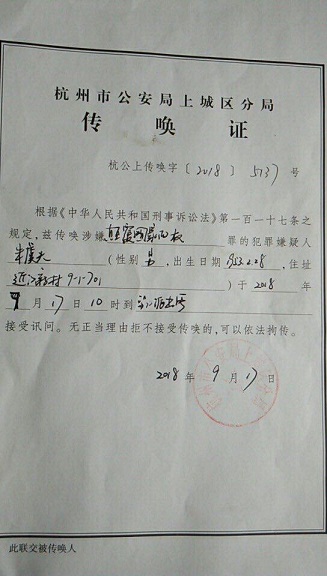 杭州市公安局上城区分局
传唤证
杭公上传唤字〔2018〕5137号
根据《中华人民共和国刑事诉讼法》第一百一十七条之
规定，兹传唤涉嫌颠覆国家政权罪的犯罪嫌疑人
(性别男，出生日期1953.2.28，住址
近江新村9-1-701)于2018年
9月17日10时到派出所
接受讯问。无正当理由拒不接受传唤的，可以依法拘传。
2018年9月17日
此联交被传唤人